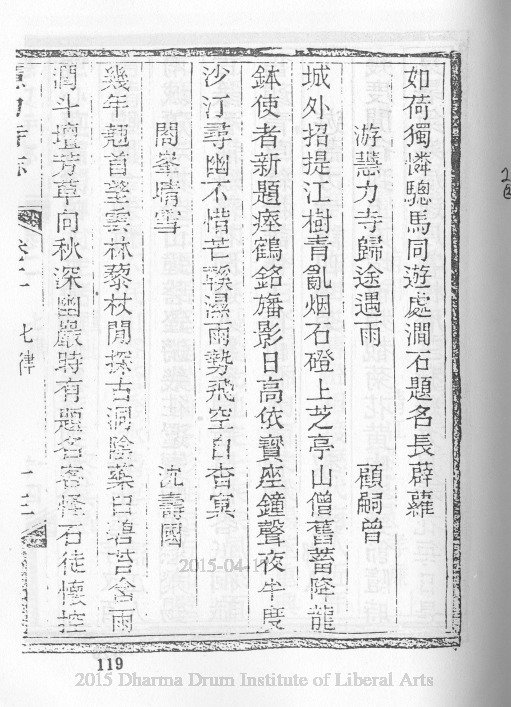 如荷獨憐驄馬同遊處澗石題名長薜蘿
游慧力寺歸途遇雨 顧嗣曾
城外招提江樹青亂烟石磴上芝亭山僧舊蓄降龍
鉢使者新題瘞鶴銘旛影日高依寶座鐘聲夜半度
沙汀尋幽不惜芒鞵濕雨勢飛空自杳冥
閤峯晴雪 沈壽國
幾年翹首望雲林藜杖閒探古洞陰藥臼碧苔含雨
潤斗壇芳草向秋深幽巖時有題名客怪石徒懷控
七律
十三
119
2015-04-1
2015 Dharma Drum Institute of Liberal Arts